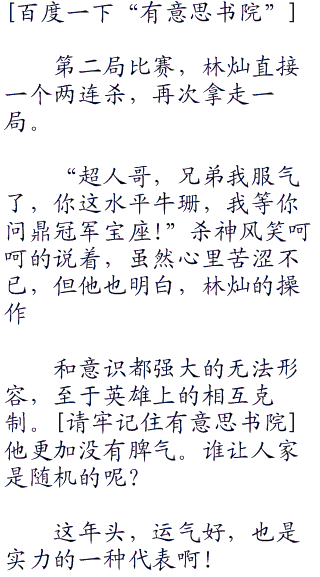 [百度一下“有意思书院”]
第二局比赛，林灿直接
一个两连杀，再次拿走一
局。
“超人哥，兄弟我服气
了，你这水平牛珊，我等你
问鼎冠军宝座！”杀神风笑呵
呵的说着，虽然心里苦涩不
已，但他也明白，林灿的操
作
和意识都强大的无法形
容，至于英雄上的相互克
制。[请牢记住有意思书院]
他更加没有脾气。谁让人家
是随机的呢？
这年头，运气好，也是
实力的一种代表啊！